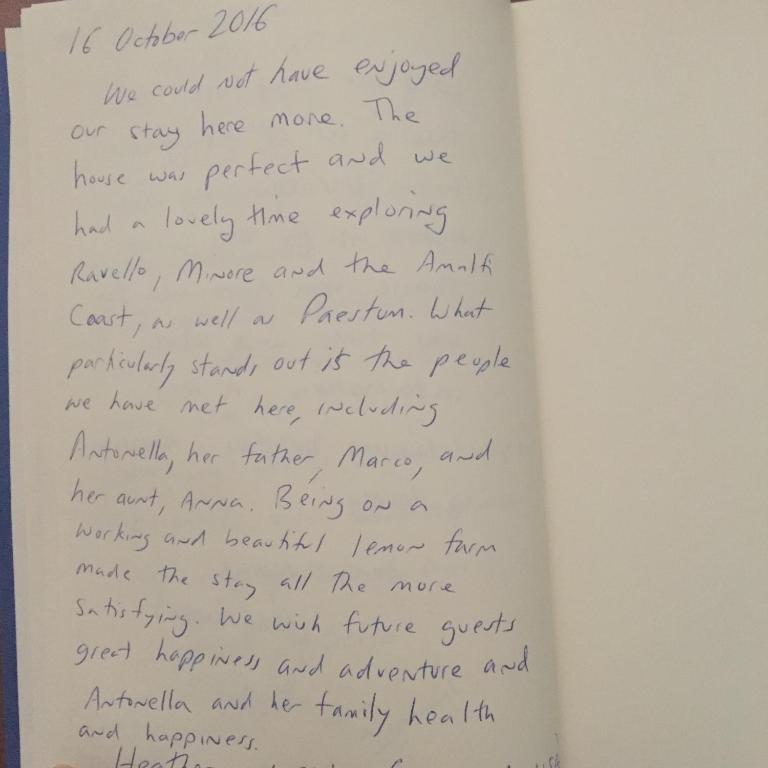 16 October 2016
We could not have enjoyed
our stay here more. The
house was perfect and we
had a lovely time exploring
Ravello, Minore and the Amalfi
Coast, as well as Paestum. What
particularly stands out is the people
we have met here, including
Antonella, her father, Marco, and
her aunt, Anna. Being on a
working and beautiful lemon farm
made the stay all the more
satisfying. We wish future guests
great happiness and adventure and
Antonella and her family health
and happiness.
Heather